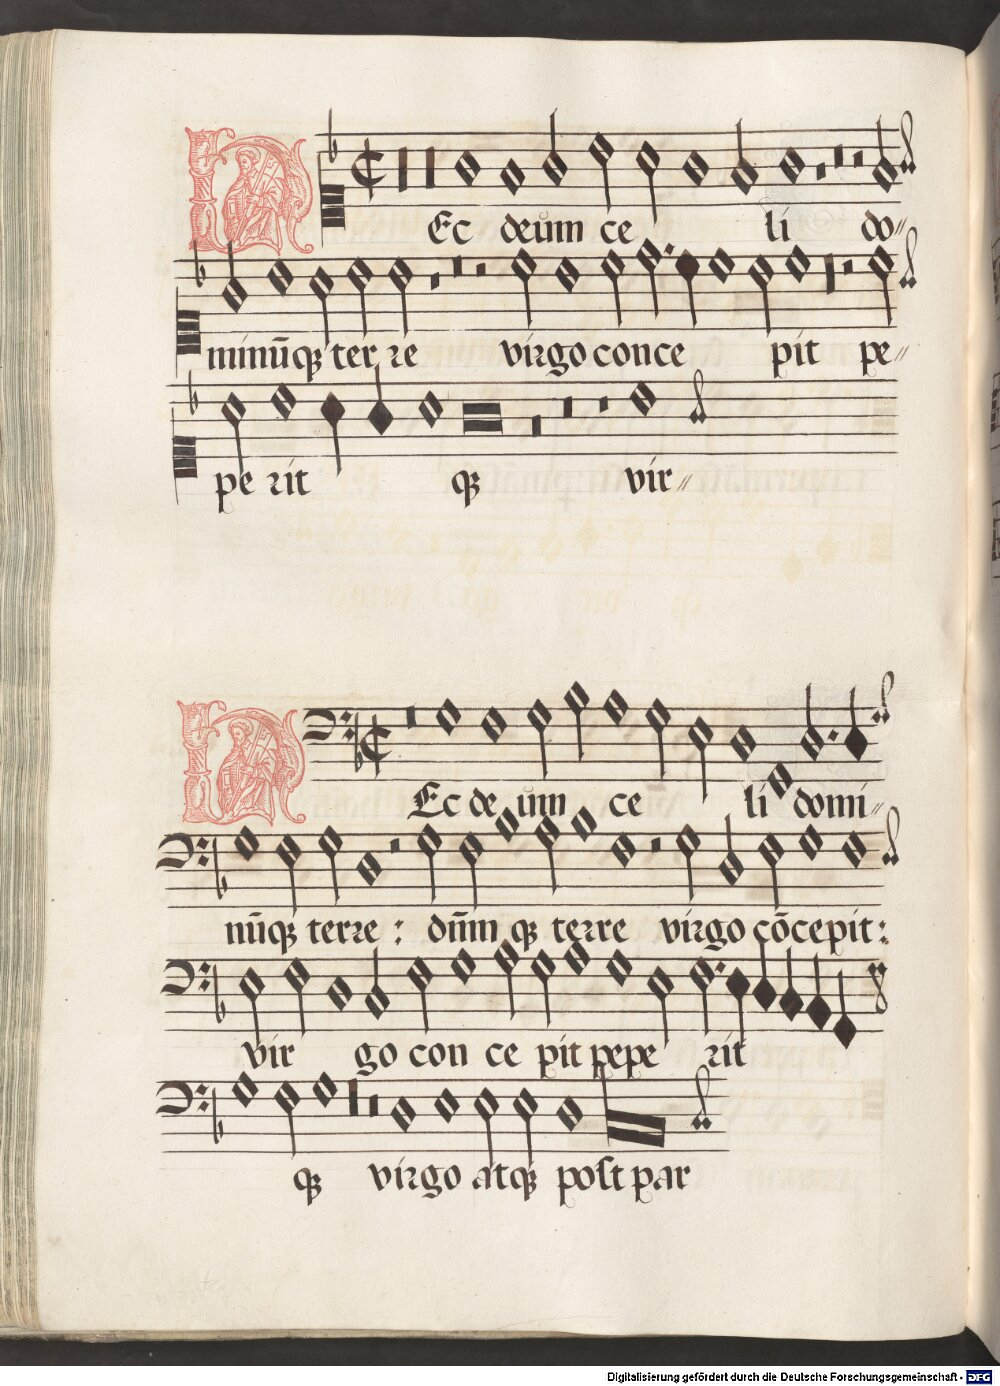 Ec deum ce li do
minūqꝫ ter re virgo conce pit pe
pe rit qꝫ vir
Ec de um ce li domi
nūqꝫ terre : dñm qꝫ terre virgo cōcepit :
vir go con ce pit pepe rit
qꝫ virgo atqꝫ post par
Digitalisierung gefördert durch die Deutsche Forschungsgemeinschaft - DFG